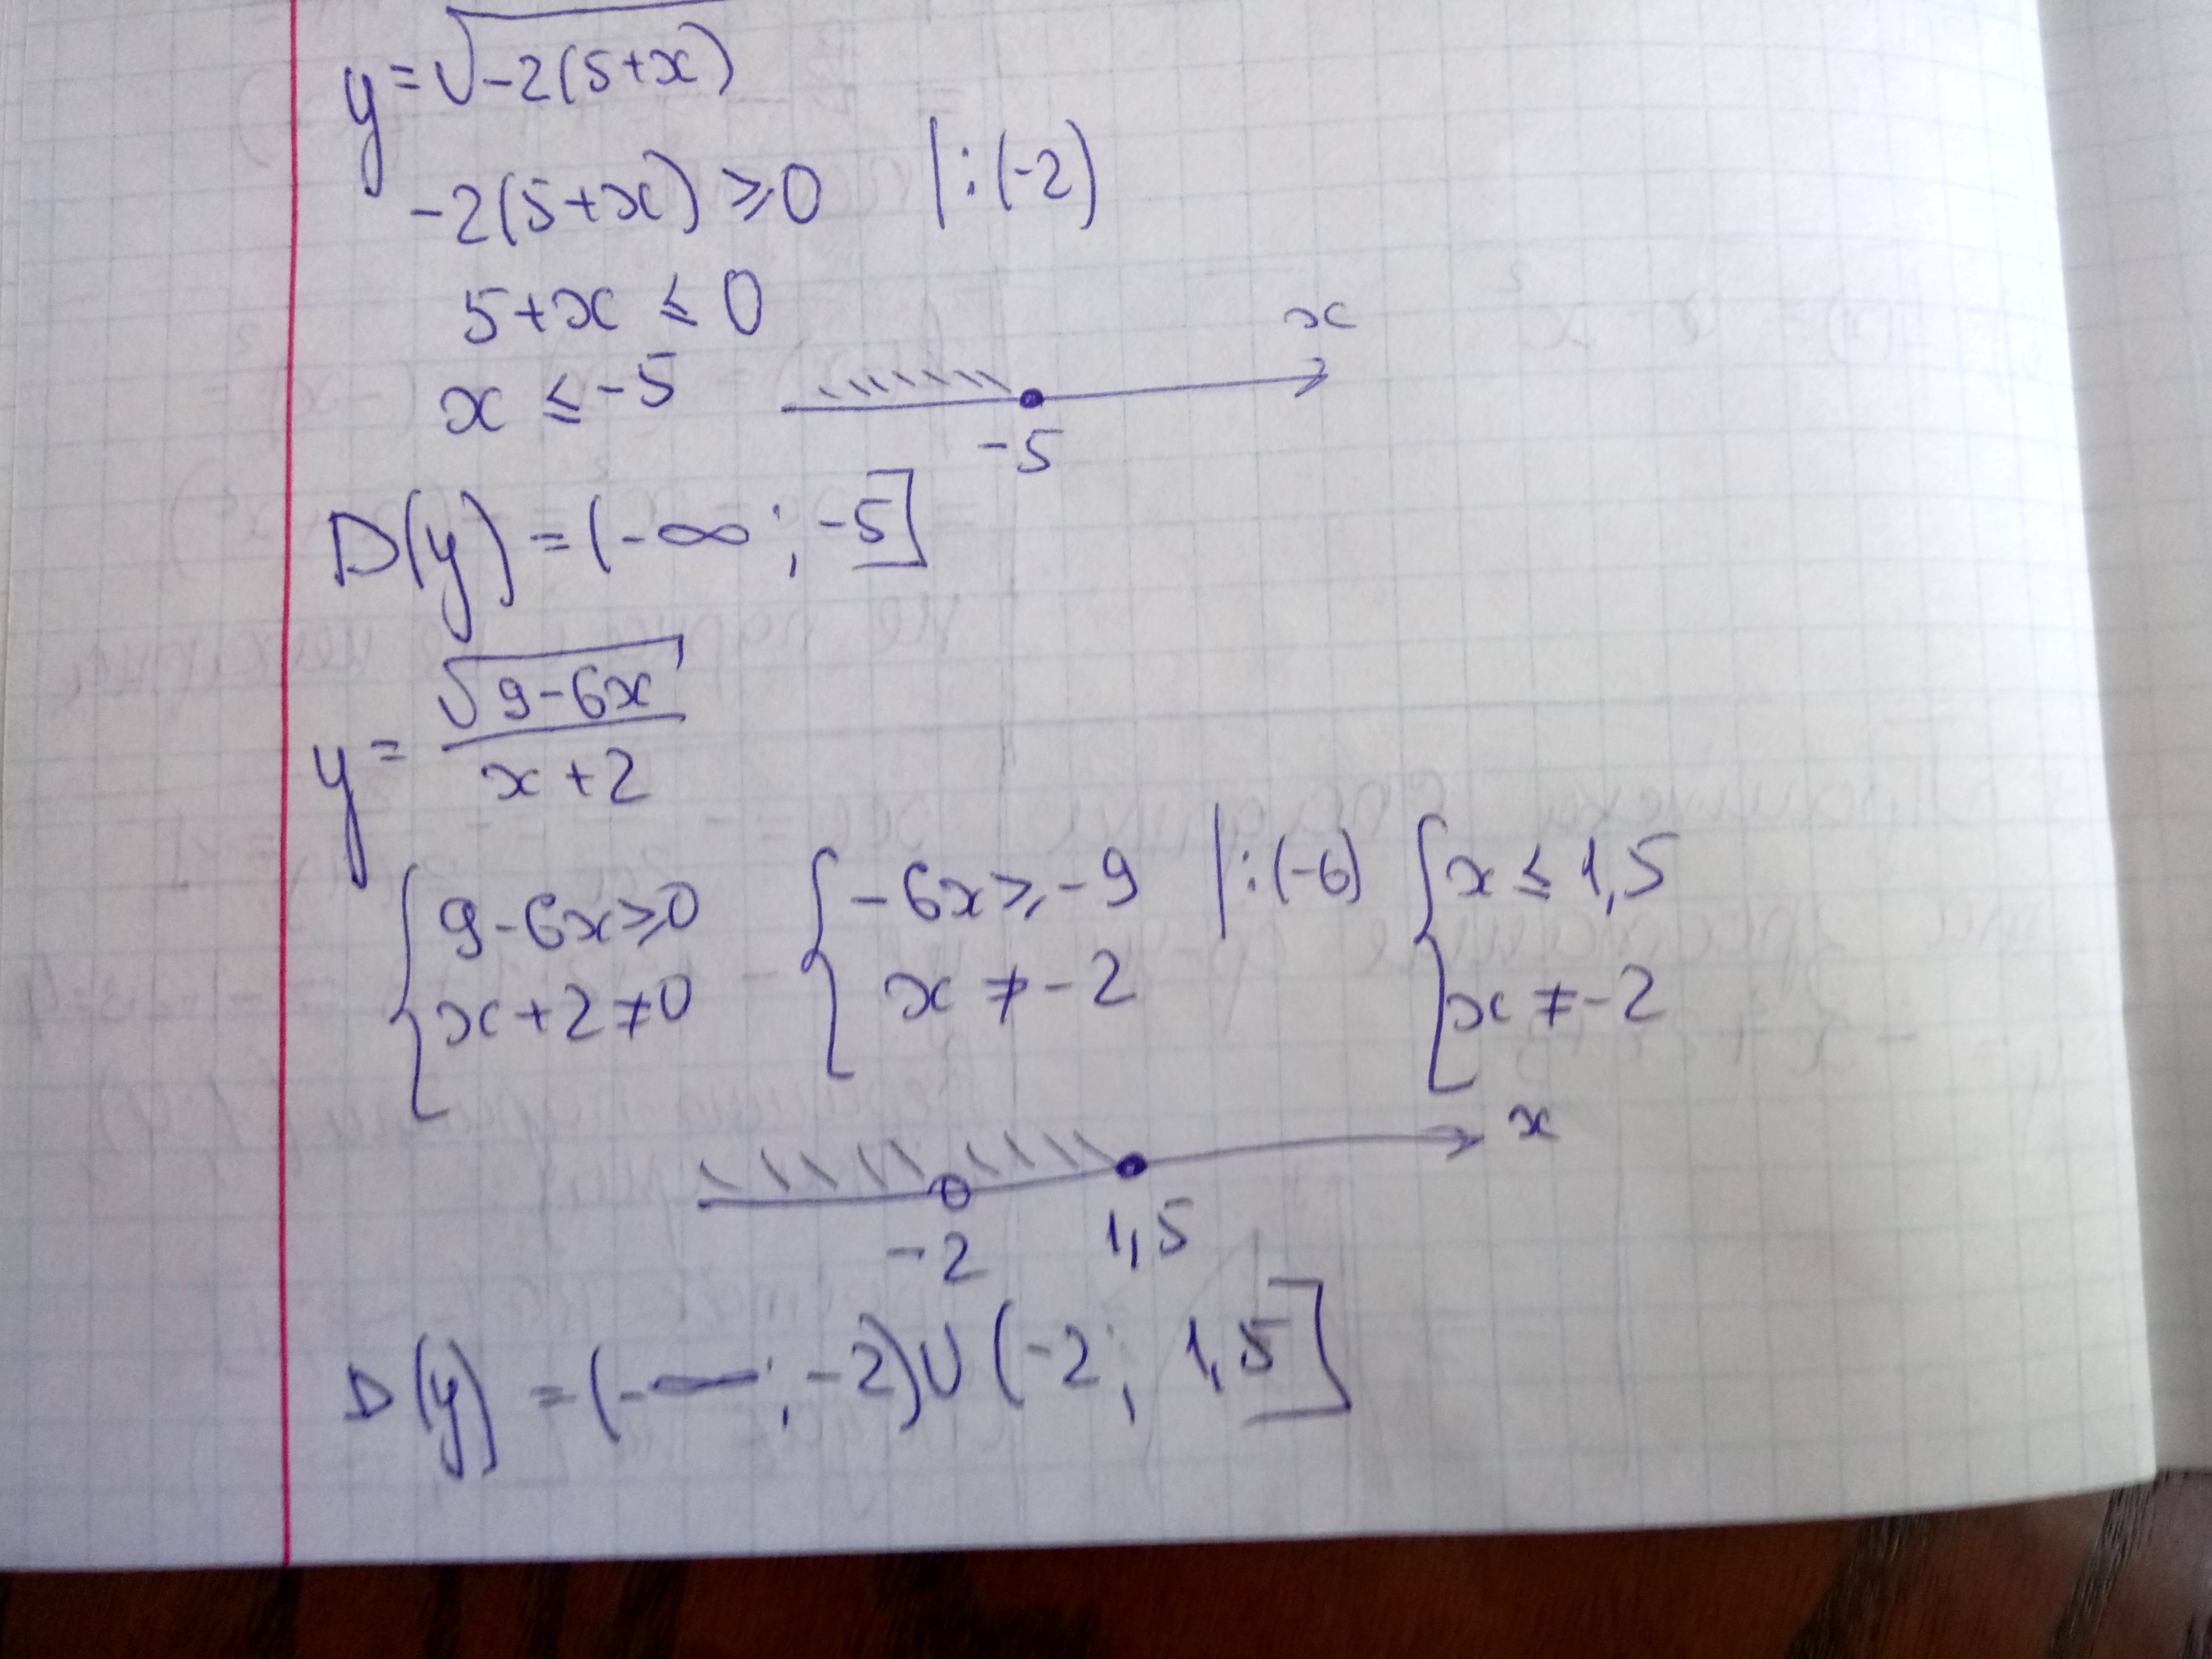 y = √-2(5+x)
-2(5+x) ≥ 0 |:(-2)
5+x ≤ 0
x ≤ -5
x
-5
D(y) = (-∞; -5]
y = √9-6x / x+2
{ 9-6x ≥ 0 { -6x ≥ -9 |:(-6) { x ≤ 1,5
x+2 ≠ 0 x ≠ -2 x ≠ -2
x
-2 1,5
D(y) = (-∞; -2) ∪ (-2; 1,5]